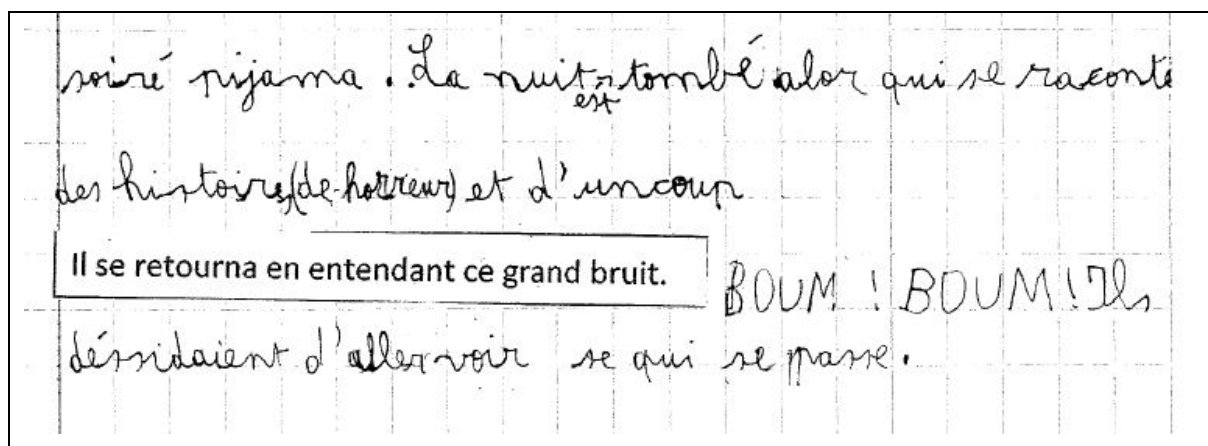 soiré pijama. La nuit est tombé alor qui se raconte
des histoires (de horreur) et d'un coup
Il se retourna en entendant ce grand bruit.
BOUM ! BOUM ! Ils
déssidaient d'aller voir se qui se passe.